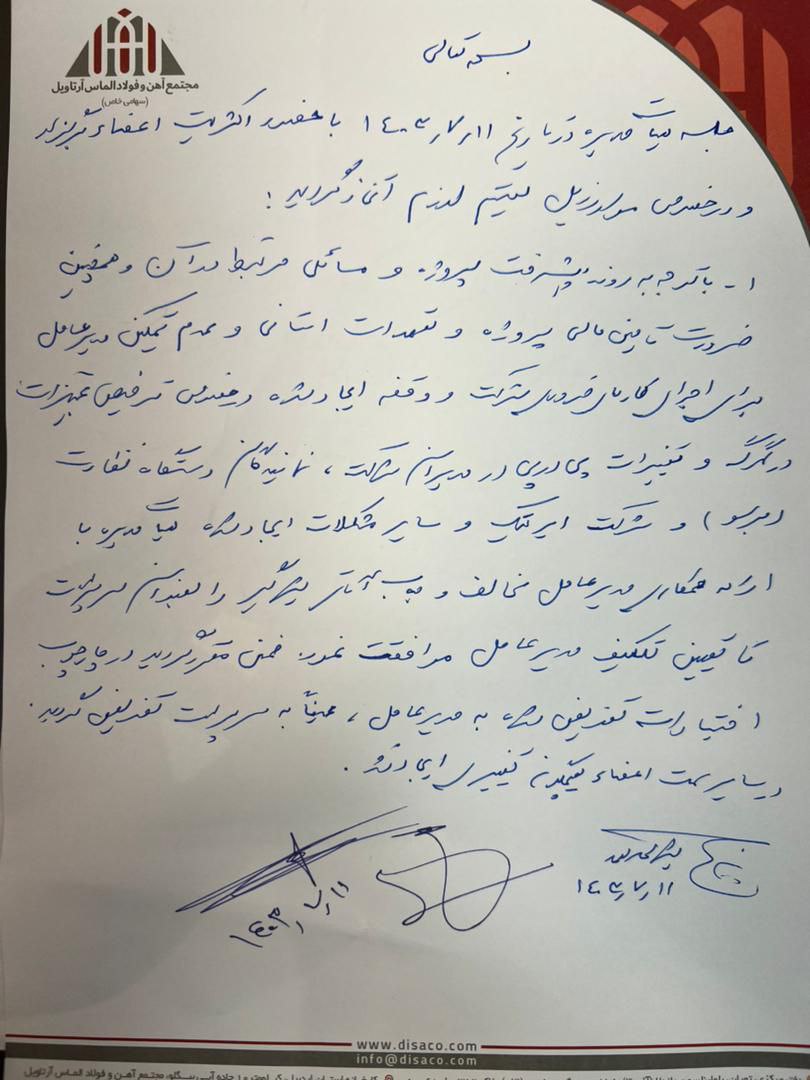 مجتمع آهن و فولاد الماس آرتاویل
(سهامی خاص)
بسمه تعالی
جلسه هیات مدیره در تاریخ ۱۴۰۳/۷/۱۱ با حضور اکثریت اعضاء برگزار
و در خصوص موارد زیل تصمیم لازم اتخاذ گردید :
۱- با توجه به روند پیشرفت پروژه و مسائل مرتبط در آن و همچنین
ضرورت تامین مالی پروژه و تعهدات استانی و عدم تمکین مدیرعامل
برای اجرای کارهای ضروری شرکت و وقفه ایجاد شده در خصوص ترخیص تجهیزات
در گمرک و تغییرات پی در پی در مدیران شرکت ، نمایندگان دستگاه نظارت
و شرکت و سایر مشکلات ایجاد شده هیات مدیره با
ادامه همکاری مدیرعامل مخالف و آقای را بعنوان سرپرست
تا تعیین تکلیف مدیرعامل موافقت نمود. ضمنی مقرر گردید در چارچوب
اختیارات تفویض شده به مدیرعامل ، عیناً به سرپرست تفویض گردید.
در سایر سمت اعضاء هیچگونه تغییری ایجاد نشد .
۱۴۰۳/۷/۱۱
۱۴۰۳/۷/۱۱
www.disaco.com
info@disaco.com